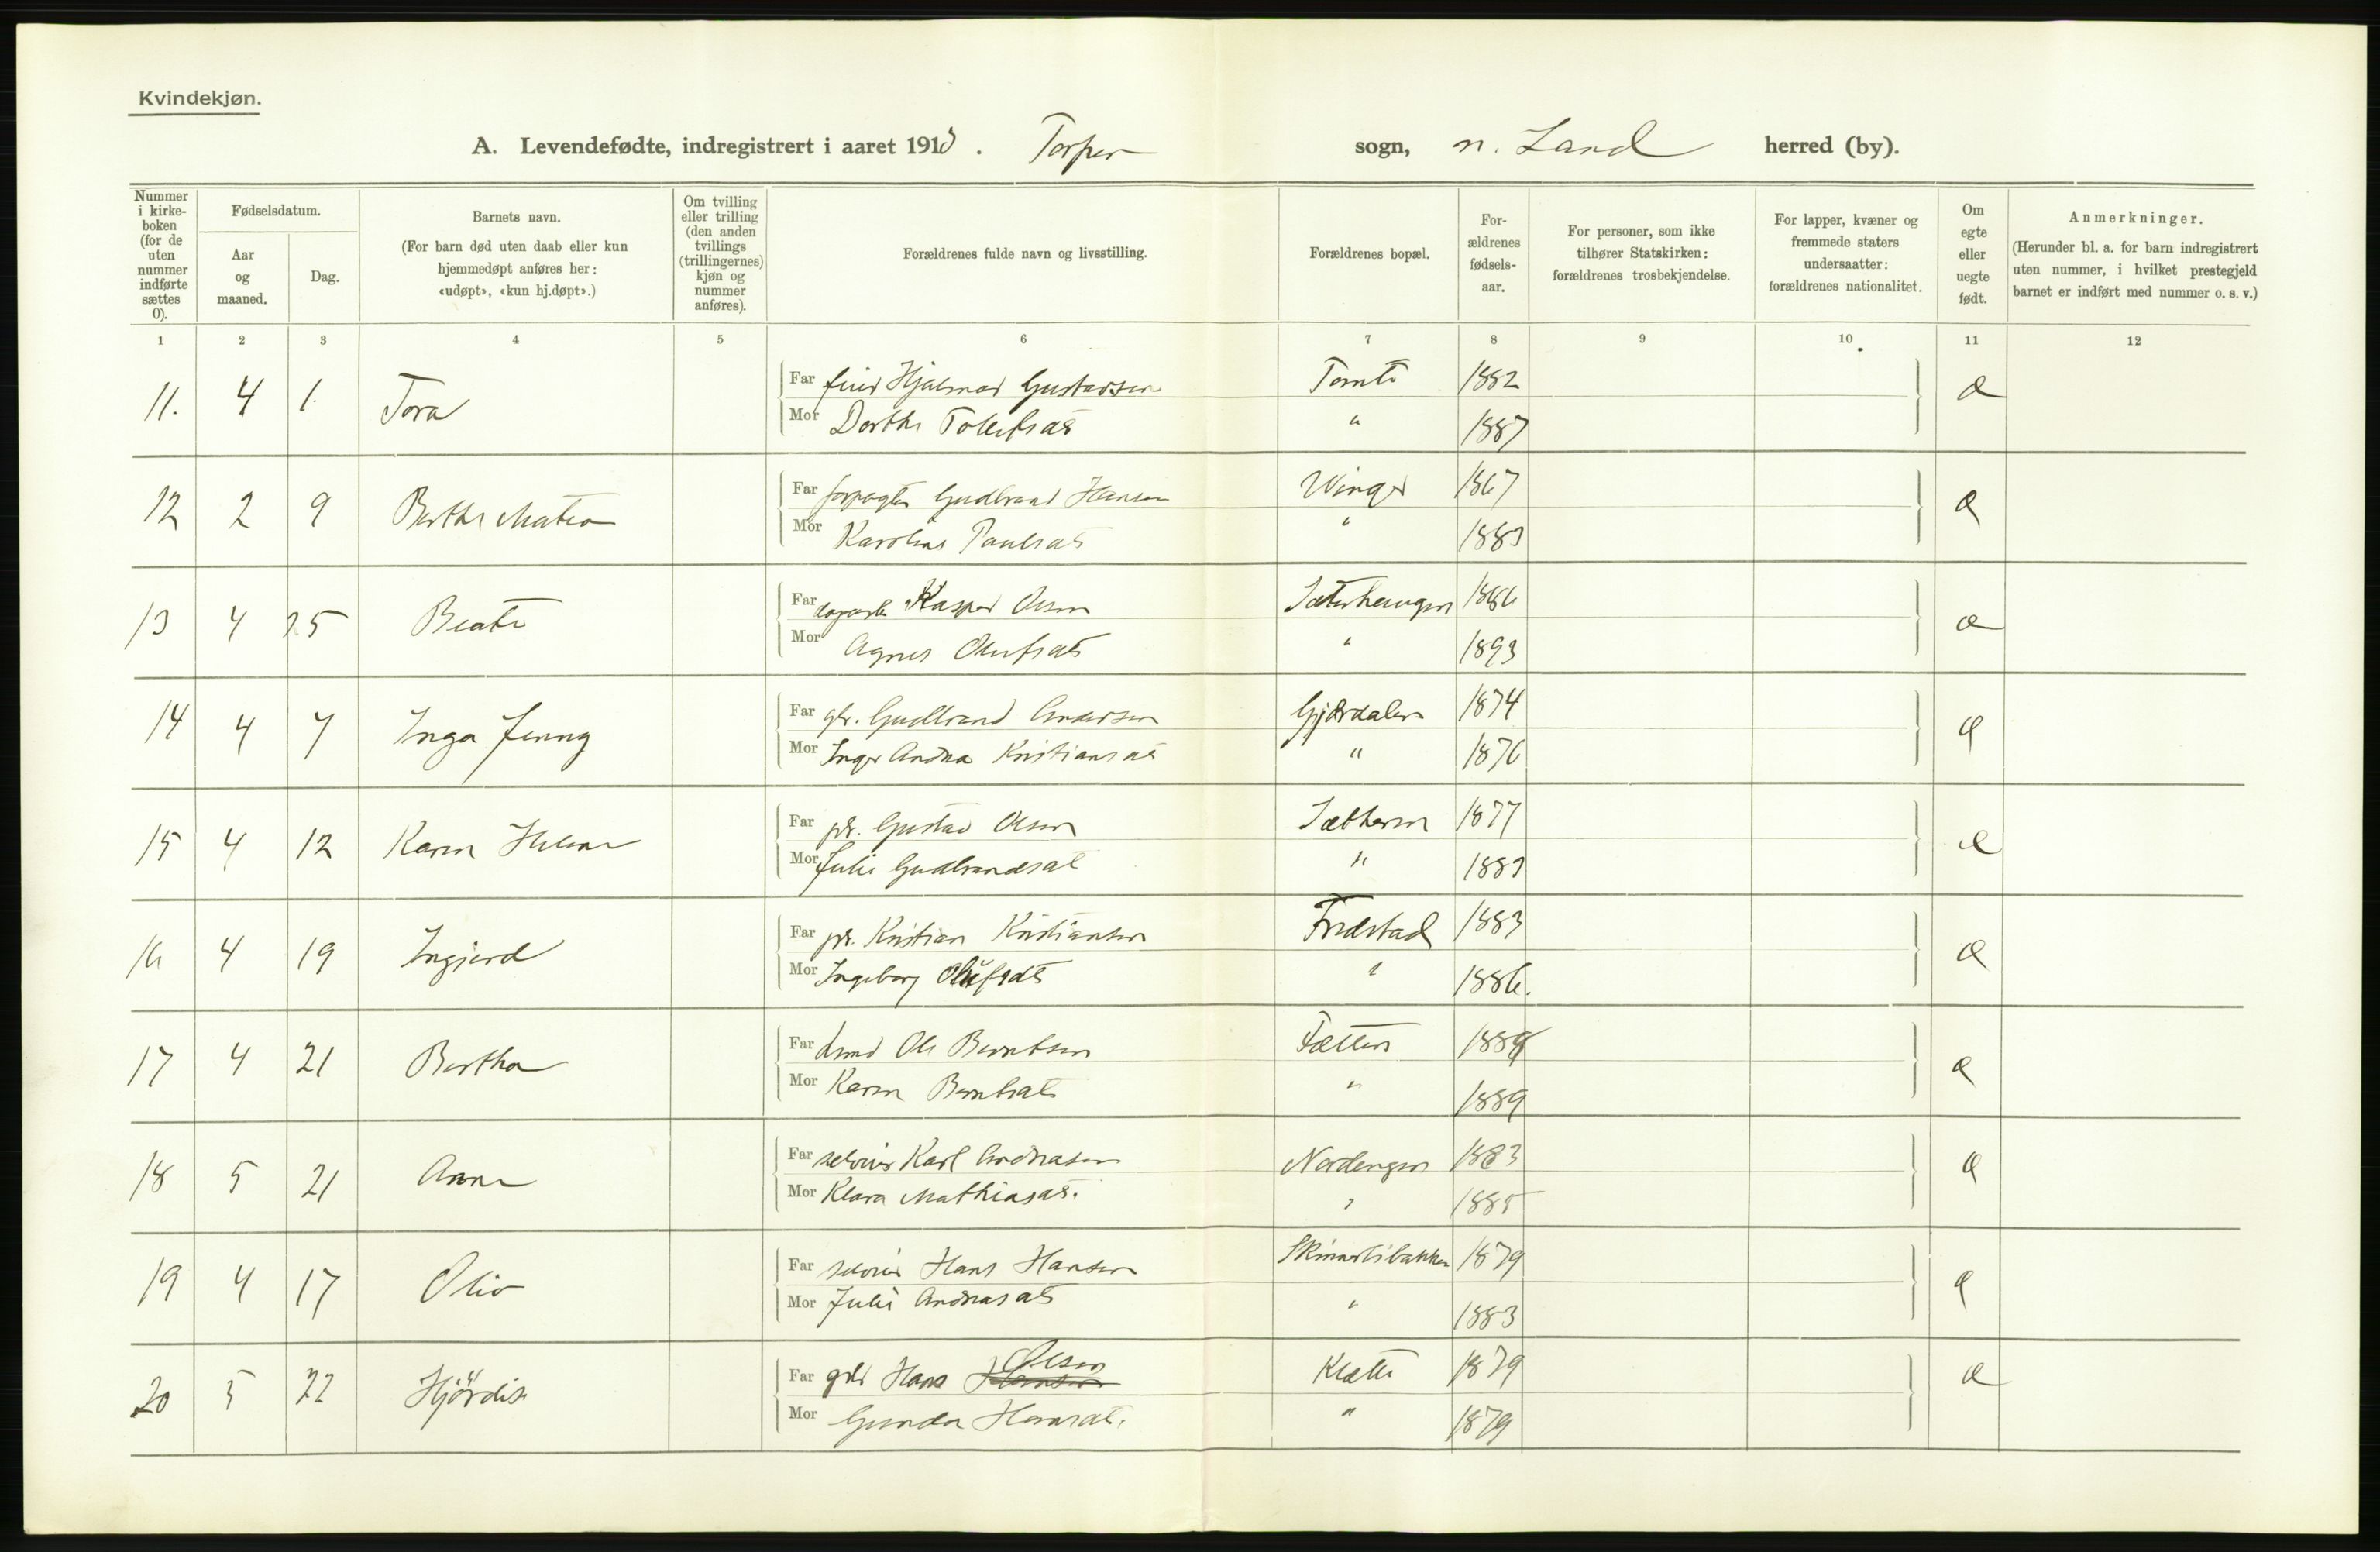 Kvindekjøn.
A. Levendefødte, indregistrert i aaret 1913. Torpen sogn, n. Land herred (by).
Nummer i kirkeboken (for de uten nummer indførte sættes 0).
Fødselsdatum.
Aar og maaned.
Dag.
Barnets navn.
(For barn død uten daab eller kun hjemmedøpt anføres her: «udøpt», «kun hj.døpt».)
Om tvilling eller trilling (den anden tvillings (trillingernes) kjøn og nummer anføres).
Forældrenes fulde navn og livsstilling.
Forældrenes bopæl.
Forældrenes fødselsaar.
For personer, som ikke tilhører Statskirken: forældrenes trosbekjendelse.
For lapper, kvæner og fremmede staters undersaatter: forældrenes nationalitet.
Om egte eller uegte født.
Anmerkninger.
(Herunder bl. a. for barn indregistrert uten nummer, i hvilket prestegjeld barnet er indført med nummer o. s. v.)
1 2 3 4 5 6 7 8 9 10 11 12
11. 4 1. Tora Far Hjalmar Gustavsen Tomte 1882 e
Mor Dorthe Tollefsdt " 1887
12 2 9 Berthe Mathea Far forpagter Gudbrand Hansen Winger 1867 e
Mor Karoline Paulsdt " 1883
13 4 25 Beate Far Kaspar Olsen Sæterhaugen 1886 e
Mor Agnes Olufsdt " 1893
14 4 7 Inga Jenny Far Gudbrand Andersen Gjærdalen 1874 e
Mor Inger Andrea Kristiansdt " 1876
15 4 12 Karen Helene Far Gustav Olsen Sætheren 1877 e
Mor Julie Gudbrandsdt " 1883
16 4 19 Ingjerd Far Kristian Kristiansen Fredstad 1883 e
Mor Ingeborg Olufsdt " 1886.
17 4 21 Bertha Far Ole Berntsen 1888 e
Mor Karen Berntsdt " 1889
18 5 21 Anne Far selveier Karl Andreasen Nordengen 1883 e
Mor Klara Mathiasdt. " 1885
19 4 17 Oliv Far selveier Hans Hansen Skinnerlibakken 1879 e
Mor Julie Andreasdt " 1883
20 5 22 Hjördis Far Hans Hansen Olsen Klætte 1879 e
Mor Gunda Hansdt. " 1879